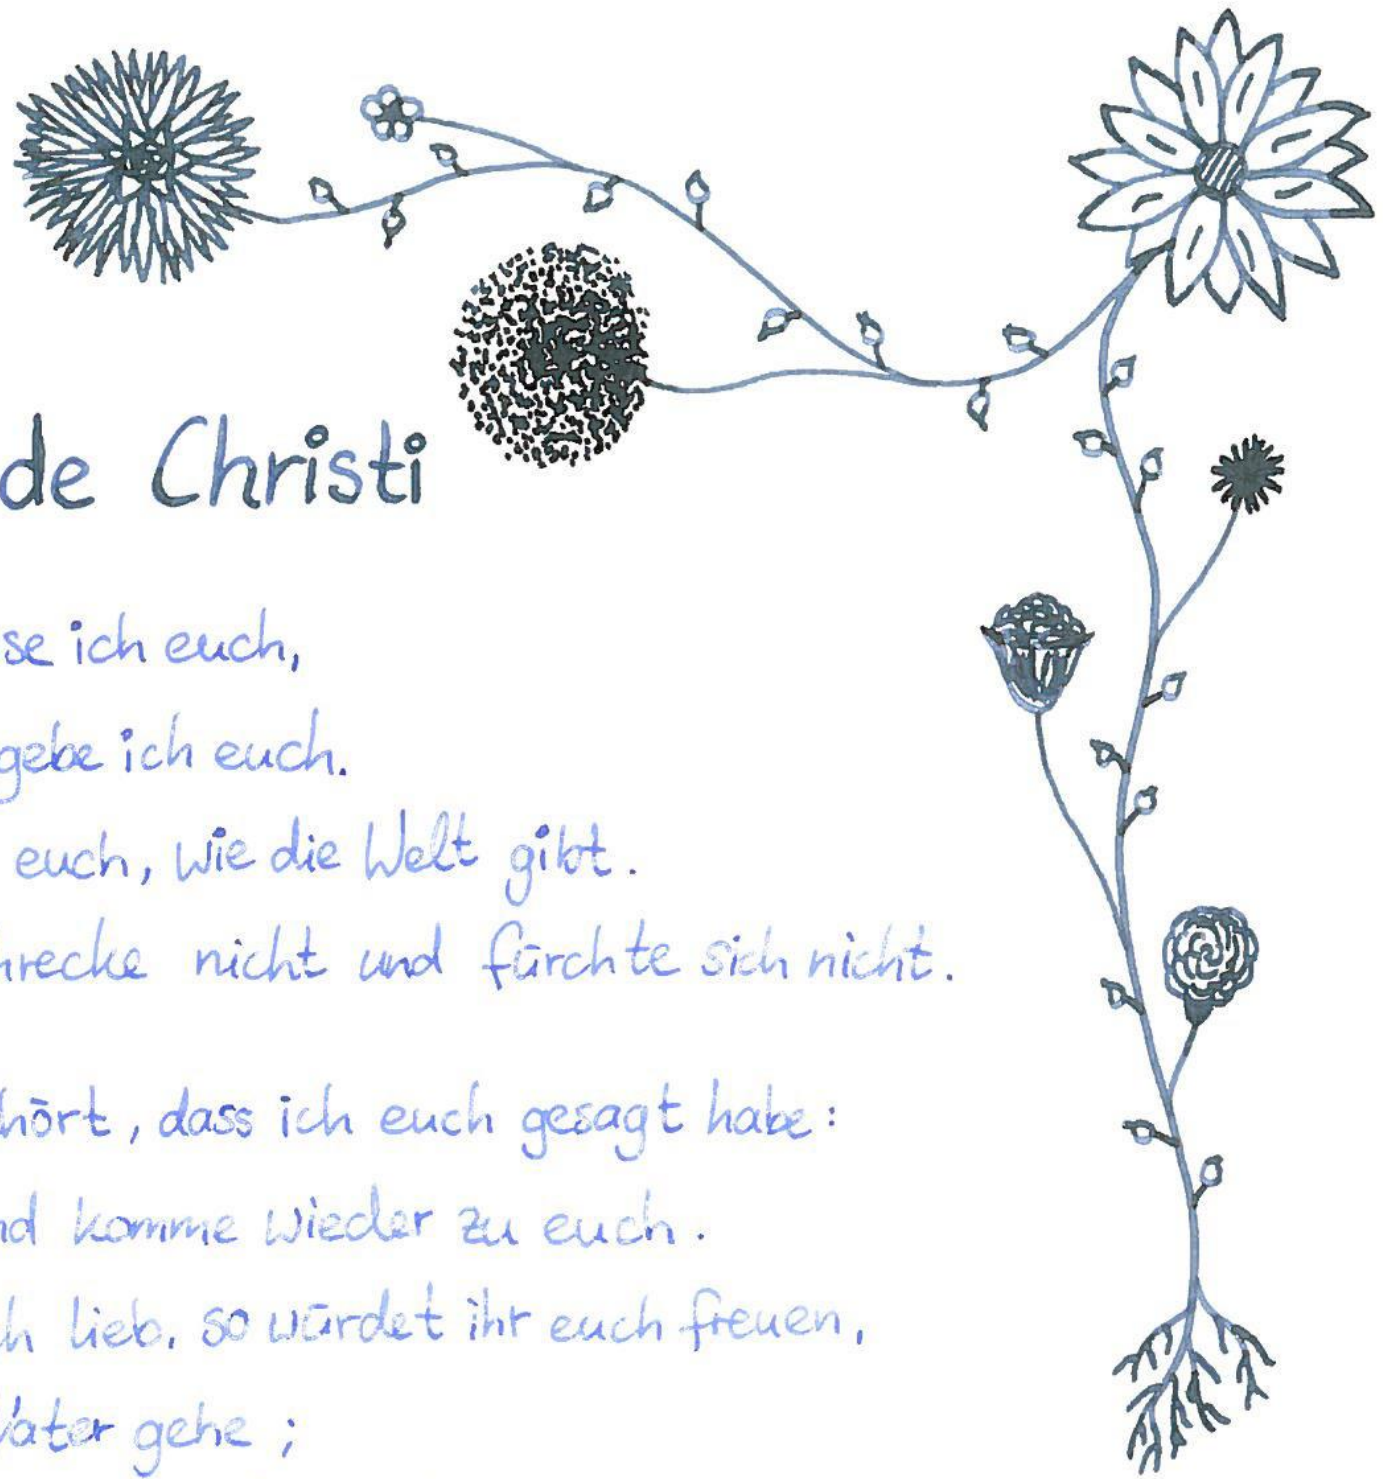 de Christi
se ich euch,
gebe ich euch.
euch, wie die Welt gibt.
hrecke nicht und fürchte sich nicht.
hört, dass ich euch gesagt habe:
nd komme wieder zu euch.
ch lieb, so würdet ihr euch freuen,
Vater gehe ;